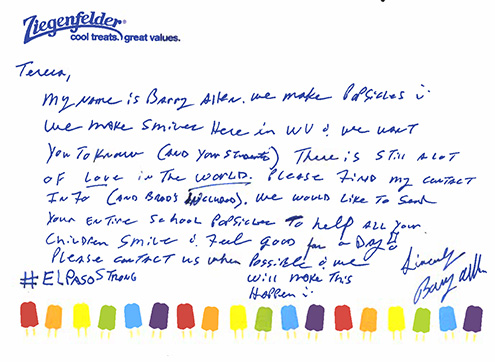 Ziegenfelder®
cool treats. great values.
Teresa,
My name is Barry Allen. We make Popsicles :
We make smiles Here in WV & we want
You To Know (and Your Students) There is still alot
of Love in the WORLD. Please find my contact
Info (and Brad's included). We would like to send
Your entire school Popsicles To help all your
children smile & feel good for a Day :
Please contact us when possible & we
will make this
Happen :
Sincerely
Barry Allen
#ELPASOSTRONG